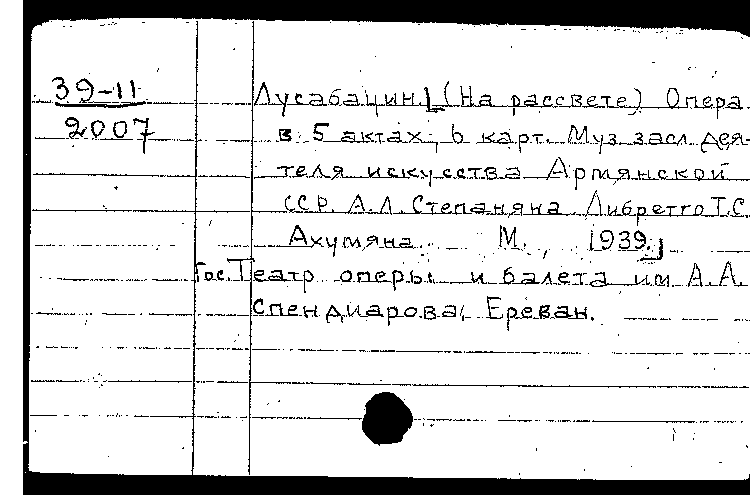 39-11
2007
Лусабацин. [(На рассвете) Опера
в 5 актах, 6 карт. Муз. засл. дея-
теля искусства Армянской
ССР. А.Л. Степаняна. Либретто Т.С.
Ахумяна. М., 1939.]
Гос. Театр оперы и балета им. А.А.
Спендиарова, Ереван.